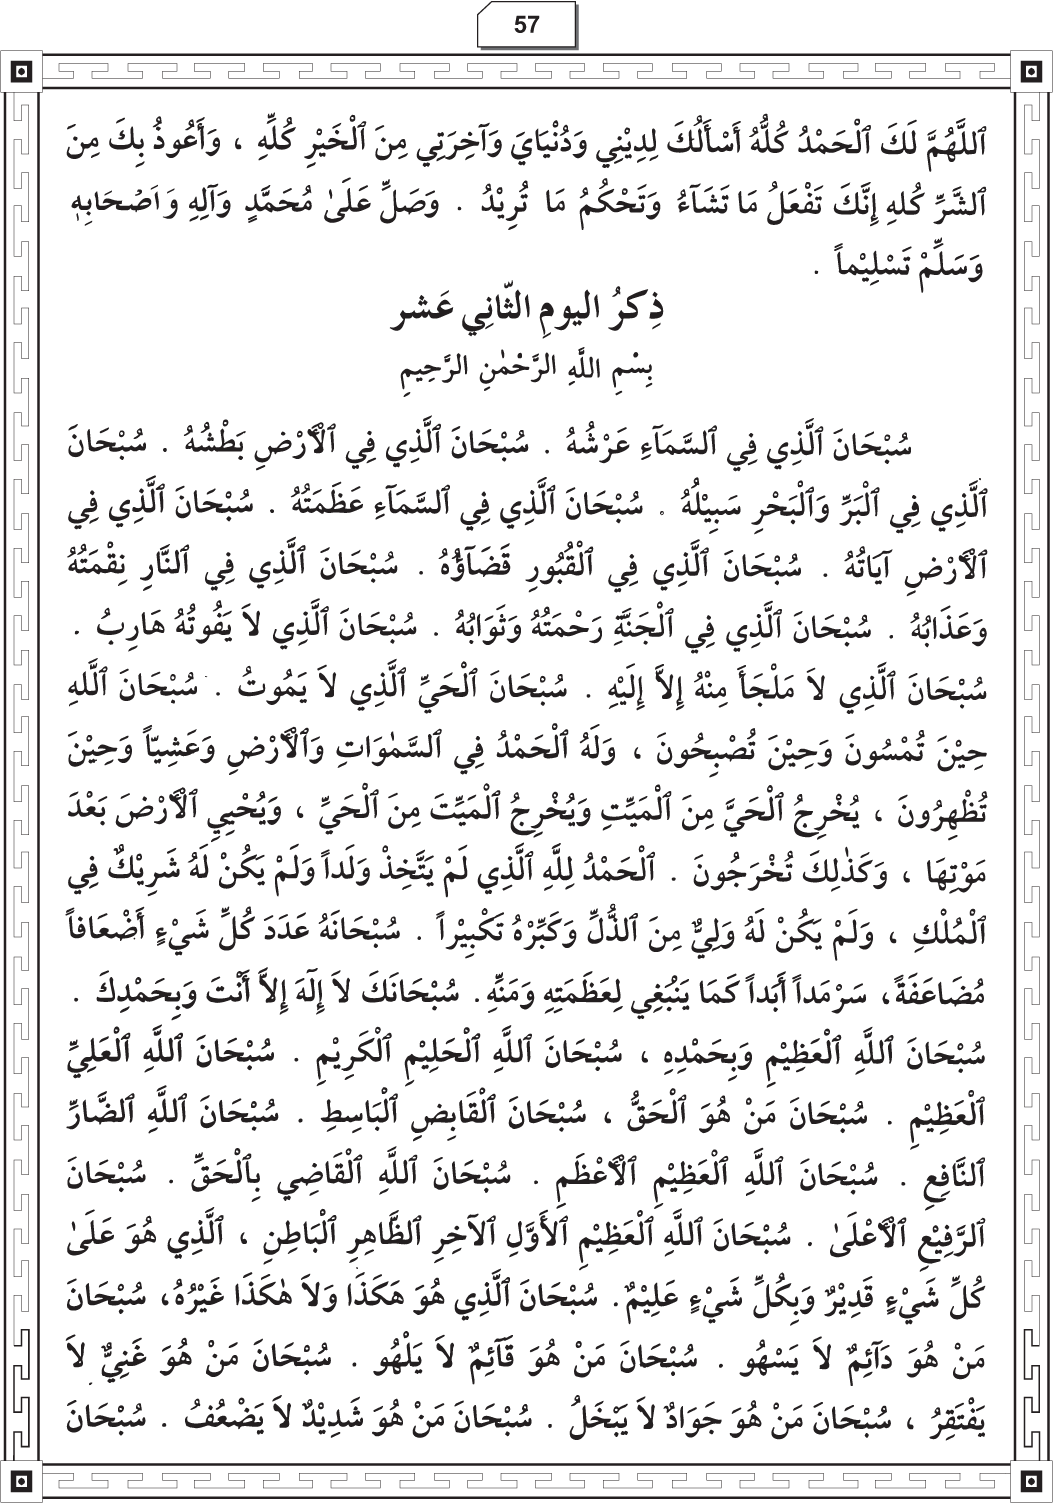 57
ٱللَّهُمَّ لَكَ ٱلْحَمْدُ كُلُّهُ أَسْأَلُكَ لِدِيْنِي وَدُنْيَايَ وَآخِرَتِي مِنَ ٱلْخَيْرِ كُلِّهِ ، وَأَعُوذُ بِكَ مِنَ
ٱلشَّرِّ كُلهِ إِنَّكَ تَفْعَلُ مَا تَشَآءُ وَتَحْكُمُ مَا تُرِيْدُ . وَصَلِّ عَلَىٰ مُحَمَّدٍ وَآلِهِ وَاَصْحَابِهِ
وَسَلِّمْ تَسْلِيْماً .
ذِكرُ اليومِ الثّانِي عَشر
بِسْمِ اللَّهِ الرَّحْمٰنِ الرَّحِيمِ
سُبْحَانَ ٱلَّذِي فِي ٱلسَّمَآءِ عَرْشُهُ . سُبْحَانَ ٱلَّذِي فِي ٱلْأَرْضِ بَطْشُهُ . سُبْحَانَ
ٱلَّذِي فِي ٱلْبَرِّ وَٱلْبَحْرِ سَبِيْلُهُ . سُبْحَانَ ٱلَّذِي فِي ٱلسَّمَآءِ عَظَمَتُهُ . سُبْحَانَ ٱلَّذِي فِي
ٱلْأَرْضِ آيَاتُهُ . سُبْحَانَ ٱلَّذِي فِي ٱلْقُبُورِ قَضَآؤُهُ . سُبْحَانَ ٱلَّذِي فِي ٱلنَّارِ نِقْمَتُهُ
وَعَذَابُهُ . سُبْحَانَ ٱلَّذِي فِي ٱلْجَنَّةِ رَحْمَتُهُ وَثَوَابُهُ . سُبْحَانَ ٱلَّذِي لاَ يَفُوتُهُ هَارِبُ .
سُبْحَانَ ٱلَّذِي لاَ مَلْجَأَ مِنْهُ إِلاَّ إِلَيْهِ . سُبْحَانَ ٱلْحَيِّ ٱلَّذِي لاَ يَمُوتُ . سُبْحَانَ ٱللهِ
حِيْنَ تُمْسُونَ وَحِيْنَ تُصْبِحُونَ ، وَلَهُ ٱلْحَمْدُ فِي ٱلسَّمٰوَاتِ وَٱلْأَرْضِ وَعَشِيّاً وَحِيْنَ
تُظْهِرُونَ ، يُخْرِجُ ٱلْحَيَّ مِنَ ٱلْمَيِّتِ وَيُخْرِجُ ٱلْمَيِّتَ مِنَ ٱلْحَيِّ ، وَيُحْيِيِ ٱلْأَرْضَ بَعْدَ
مَوْتِهَا ، وَكَذٰلِكَ تُخْرَجُونَ . ٱلْحَمْدُ لِلَّهِ ٱلَّذِي لَمْ يَتَّخِذْ وَلَداً وَلَمْ يَكُنْ لَهُ شَرِيْكٌ فِي
ٱلْمُلْكِ ، وَلَمْ يَكُنْ لَهُ وَلِيٌّ مِنَ ٱلذُّلِّ وَكَبِّرْهُ تَكْبِيْراً . سُبْحَانَهُ عَدَدَ كُلِّ شَيْءٍ أَضْعَافاً
مُضَاعَفَةً، سَرْمَداً أَبَداً كَمَا يَنْبُغِي لِعَظَمَتِهِ وَمَنِّهِ. سُبْحَانَكَ لاَ إِلٓهَ إِلاَّ أَنْتَ وَبِحَمْدِكَ .
سُبْحَانَ ٱللَّهِ ٱلْعَظِيْمِ وَبِحَمْدِهِ ، سُبْحَانَ ٱللَّهِ ٱلْحَلِيْمِ ٱلْكَرِيْمِ . سُبْحَانَ ٱللَّهِ ٱلْعَلِيِّ
ٱلْعَظِيْمِ . سُبْحَانَ مَنْ هُوَ ٱلْحَقُّ ، سُبْحَانَ ٱلْقَابِضِ ٱلْبَاسِطِ . سُبْحَانَ ٱللَّهِ ٱلضَّارِّ
ٱلنَّافِعِ . سُبْحَانَ ٱللَّهِ ٱلْعَظِيْمِ ٱلْأَعْظَمِ . سُبْحَانَ ٱللَّهِ ٱلْقَاضِي بِٱلْحَقِّ . سُبْحَانَ
ٱلرَّفِيْعِ ٱلْأَعْلَىٰ . سُبْحَانَ ٱللَّهِ ٱلْعَظِيْمِ ٱلأَوَّلِ ٱلآخِرِ ٱلظَّاهِرِ ٱلْبَاطِنِ ، ٱلَّذِي هُوَ عَلَىٰ
كُلِّ شَيْءٍ قَدِيْرٌ وَبِكُلِّ شَيْءٍ عَلِيْمٌ. سُبْحَانَ ٱلَّذِي هُوَ هَكَذَا وَلاَ هٰكَذَا غَيْرُهُ، سُبْحَانَ
مَنْ هُوَ دَآئِمٌ لاَ يَسْهُو . سُبْحَانَ مَنْ هُوَ قَآئِمٌ لاَ يَلْهُو . سُبْحَانَ مَنْ هُوَ غَنِيٌّ لاَ
يَفْتَقِرُ ، سُبْحَانَ مَنْ هُوَ جَوَادٌ لاَ يَبْخَلُ . سُبْحَانَ مَنْ هُوَ شَدِيْدٌ لاَ يَضْعُفُ . سُبْحَانَ